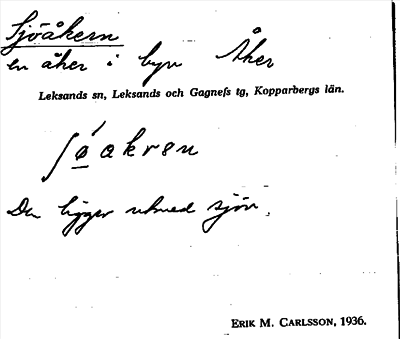 Sjöåkern
en åker i byn Åker
Leksands sn, Leksands och Gagnefs tg, Kopparbergs län.
Den ligger utmed sjön.
ERIK M. CARLSSON, 1936.